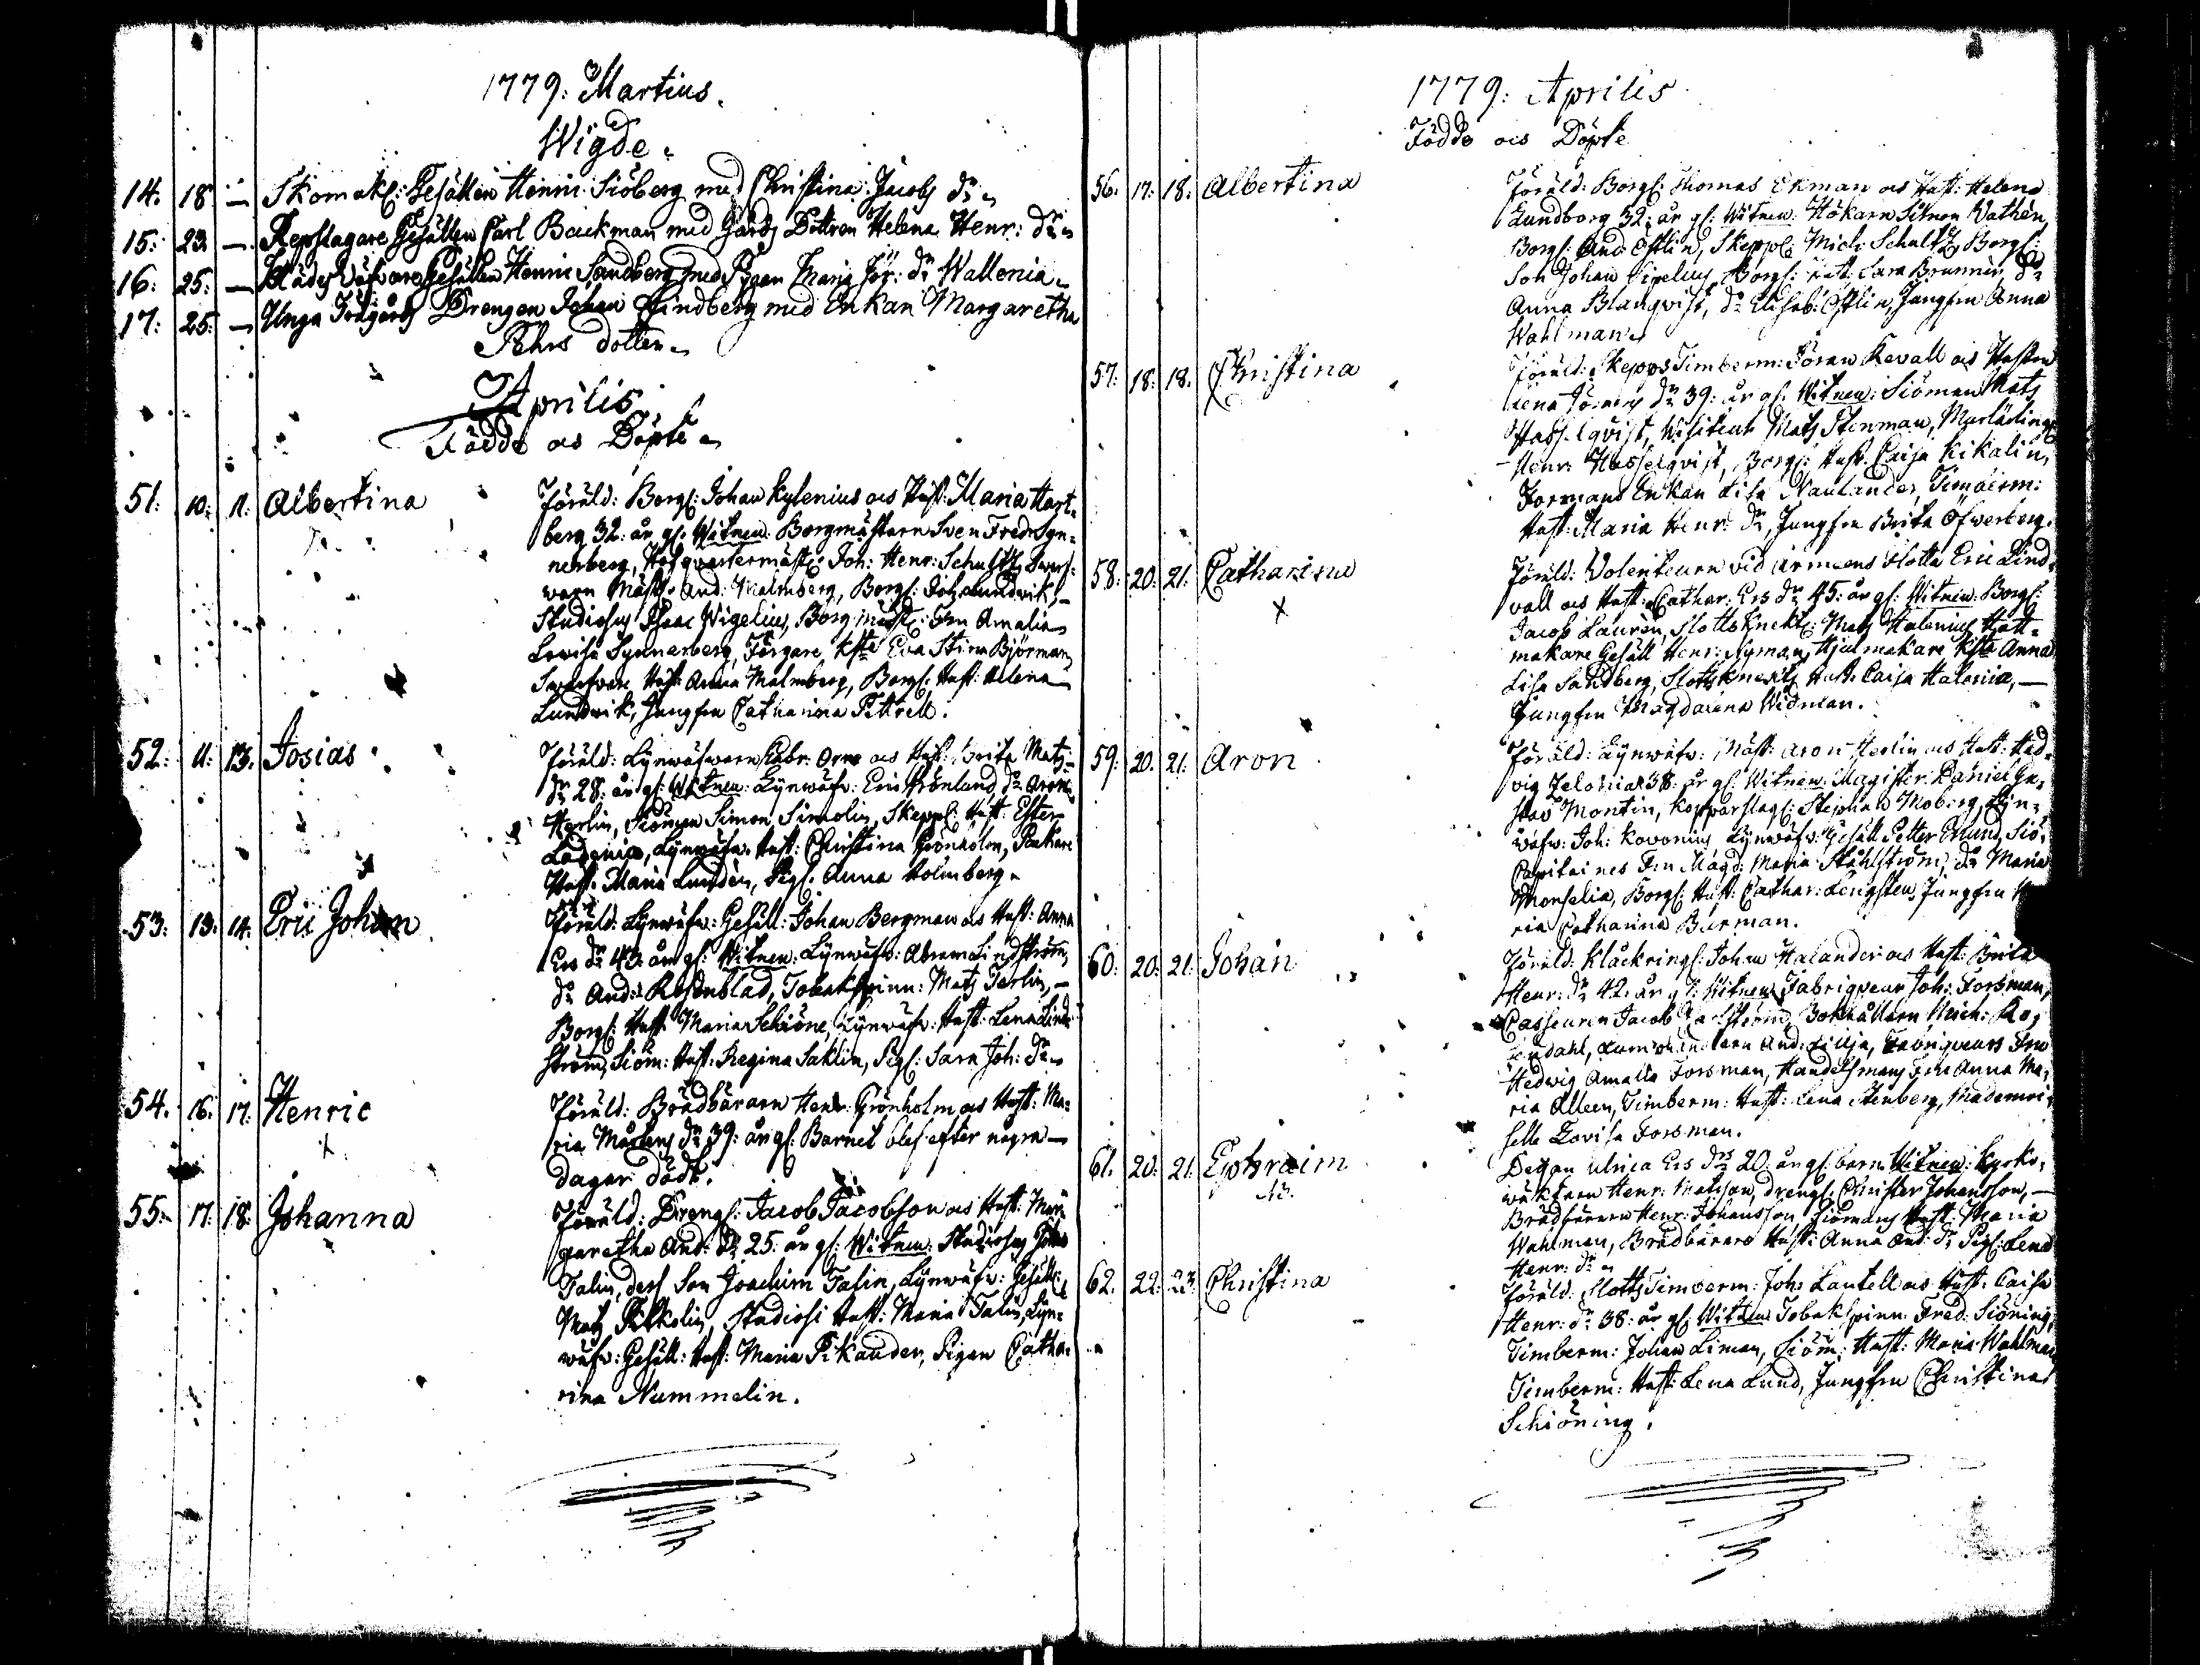 1779: Martius.
Wigde.
14. 18 — Skomak: Gesällen Henric Siöberg med Christina Jacobs dr
15: 23 — Repslagare Gesällen Carl Backman med Gårds Dottren Helena Henr: dr
16: 25: — Klädes Väfvare Gesällen Henric Sandberg med Pigan Maria dr Wallenia
17: 25: — Unga Drengen Johan Lindberg med Enkan Margaretha
Pehrs dotter
Aprilis
Födde ocs Döpte
51: 10: 11: Albertina Föräld: Borg: Johan Kylenius ocs Hust: Maria Hart-
berg 32: år gl: Witnen: Borgmästarn Sven Fredr Syn-
nerberg, Joh: Henr: Schultz
And: Malmberg, Borg: Joh Lundvik,
Studiosus Isaac Wigelius, Fru Amalia
Lovisa Synnerberg, Färgare Eva Stina Björman
Hust: Anna Malmberg, Borg: Hust: Helena
Lundvik, Jungfru Catharina
52: 11: 13: Josias Föräld: Lynwäfwaren Gabr: ocs Hust: Brita Matz
dr 28: år gl: Witnen: Lynwäfv: Eric Grönland, do Aron
Herlin, Simon Simolin, Skepp: Hust: Ester
Lynwäfv: Hust: Christina Grönholm,
Hust: Maria Lundén, Pig: Anna Holmberg
53: 13: 14: Eric Johan Föräld: Lynwäfv: Gesäll: Johan Bergman ocs Hust: Anna
Ers dr 43: år gl: Witnen: Lynwäfv: Abram Lindström,
do And: Rosenblad, Tobakspinn: Matz
Borg: Hust: Maria Schiöne, Lynwäfv: Hust: Lena Lind-
ström, Siöm: Hust: Regina Saklin, Pig: Sara Joh: dr
54. 16. 17: Henric Föräld: Brädbäraren Henr: Grönholm ocs Hust: Ma-
ria Mårtens dr 39: år gl: Barnet blef efter några
dagar dödt.
55: 17: 18: Johanna Föräld: Dreng: Jacob Jacobson ocs Hust: Mar-
garetha And: dr 25: år gl: Witnen: Studiosus
Talin, dess Son Joachim Talin, Lynwäfv: Gesäll:
Matz Studiosi Hust: Maria Talin, Lyn-
wäfv: Gesäll: Hust: Maria Pigan Catha-
rina Nummelin.
1779: Aprilis
Födde ocs Döpte
56: 17: 18: Albertina Föräld: Borg: Thomas Ekman ocs Hust: Helena
Lundborg 32: år gl: Witnen: Hökaren Simon Wathén,
Borg: And: Östlin, Skepp: Mich: Schultz, Borg:
Son Johan Borg: Hust: Sara Brunner, do
Anna Blanqvist, do Elisab: Östlin, Jungfru Anna
Wahlman
57: 18: 18: Christina Föräld: Skepps Timberm: Göran Kevall ocs Hustru
Lena dr 39: år gl: Witnen: Siöman Matz
Hasselqvist, Matz Stenman,
Henr: Hasselqvist, Borg: Hust: Caisa Kikalin,
Enkan Lisa Naulander, Timberm:
Hust: Maria Henr: dr, Jungfru Brita Öfwerberg.
58: 20: 21: Catharina Föräld: Volenteuren vid armeens flotta Eric Lind-
vall ocs Hust: Cathar: Ers dr 45: år gl: Witnen: Borg:
x Jacob Laurén, Slottsknekt: Matz Halenius, Hatt-
makare Gesäll Henr: Nyman, Hjulmakare Anna
Lisa Sandberg, Slottsknekts Hust: Caisa Halenia,
Jungfru Magdalena Widman.
59: 20. 21. Aron Föräld: Lynwäfv: Mäst: Aron Herlin ocs Hust: Hed-
vig 38: år gl: Witnen: Magister Daniel Gu-
stav Montin, Kopparslag: Stephan Moberg, Lyn-
wäfv: Joh: Kovonius, Lynwäfv: Gesäll Petter Siö-
Capitaines Fru Magd: Maria Ståhlström, do Maria
Monselia, Borg: Hust: Cathar: Lengsten, Jungfru
ria Catharina Burman.
60: 20: 21: Johan Föräld: Johan Halander ocs Hust: Brita
Henr: dr 42: år gl: Witnen: Fabriqueur Joh: Forsman,
Casseuren Jacob Bokhållaren
And: Lilja, Fabriqueurs Fru
Hedwig Amalia Forsman, Handelsmans Fru Anna Ma-
ria Alleen, Timberm: Hust: Lena Stenberg, Mademoi-
selle Lovisa Forsman.
61. 20: 21. Ephraim Pigan Ulrica Ers drs 20: år gl: barn Witnen: Kyrko-
wäktaren Henr: Matsson, dreng: Christer Johansson,
Brädbäraren Henr: Johansson, Siömans Hust: Maria
Wahlman, Brädbärare Hust: Anna And: dr Pig: Lena
Henr: dr
62. 22: 23. Christina Föräld: Slotts Timberm: Joh: Lautell ocs Hust: Caisa
Henr: dr 38: år gl: Witnen: Tobakspinn: Fred: Siöning,
Timberm: Johan Liman, Siöm: Hust: Maria Wahlman
Timberm: Hust: Lena Lund, Jungfru Christina
Schiöning.